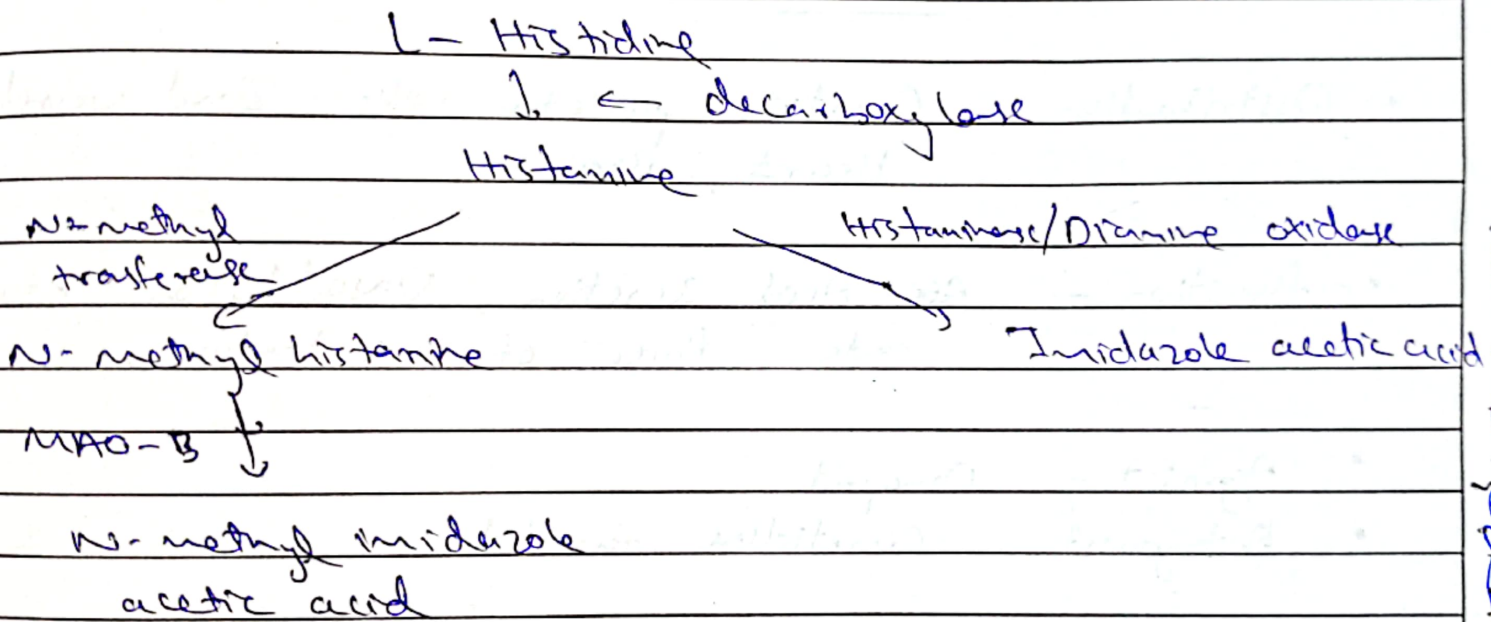 L- Histidine
↓ ← decarboxylase
Histamine
N-methyl Histaminase/Diamine oxidase
trasferase
N- methyl histamine Imidazole acetic acid
MAO-B ↓
N-methyl imidazole
acetic acid